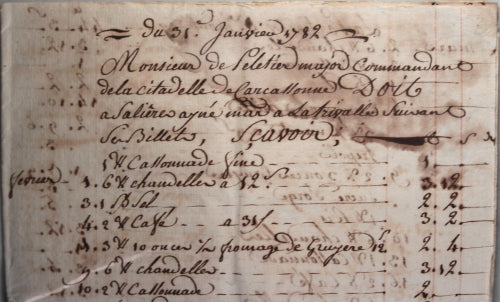 du 31 Janvier 1782
Monsieur de Peletier major Commandant
de la Citadelle de Carcassonne Doit
a Salieres ayné mar a Latrivalle Suivant
Ses Billets, Sçavoir,
5 ℔ Cassonnade fine 1.
fevrier 1. 6 ℔ chandelles a 12 s 3. 12.
3. 1 Sel 2. 2.
4. 2 ℔ Caffé a 31 s 3. 2.
3 ℔ 10 onces fromage de Gruyere 2. 4.
9. 6 ℔ chandelles 3. 12.
10. 2 ℔ Cassonnade 2.